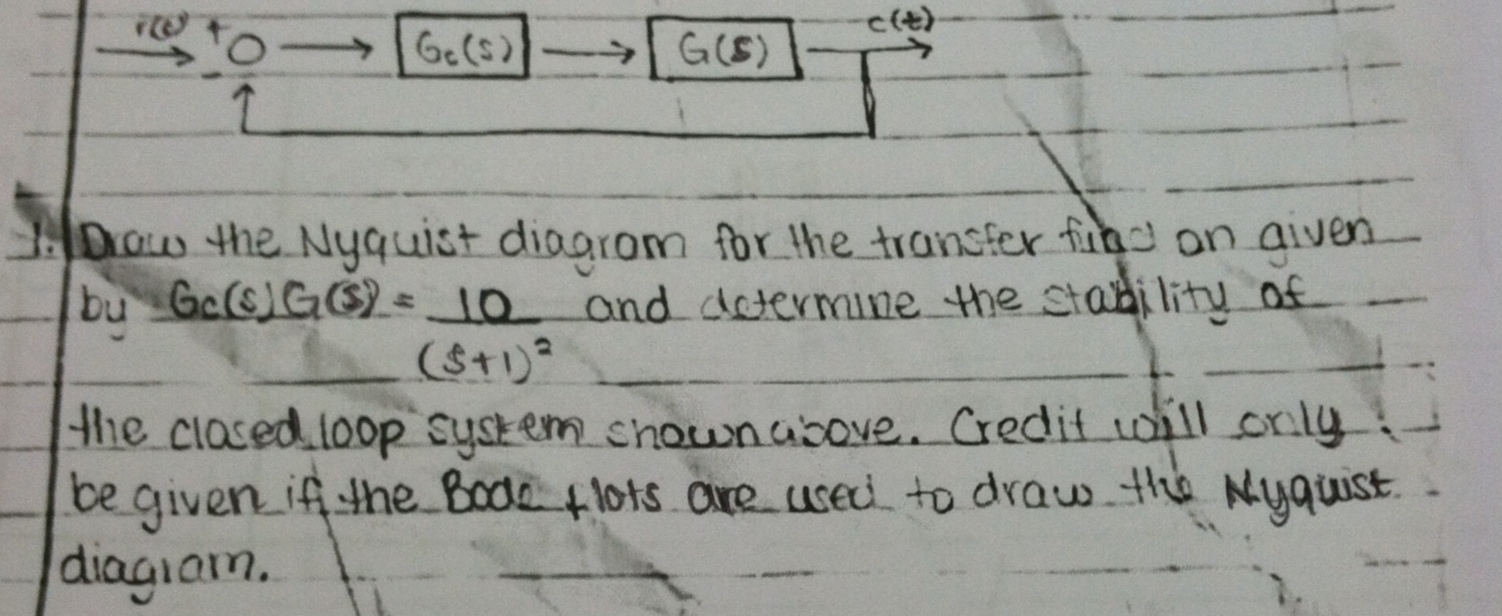 r(t) + c(t)
Gc(s) G(s)
-
1. Draw the Nyquist diagram for the transfer on given
by Gc(s)G(s) = 10 and determine the stability of
(s+1)²
the closed loop system shown above. Credit will only
be given if the Bode plots are used to draw the Nyquist
diagram.